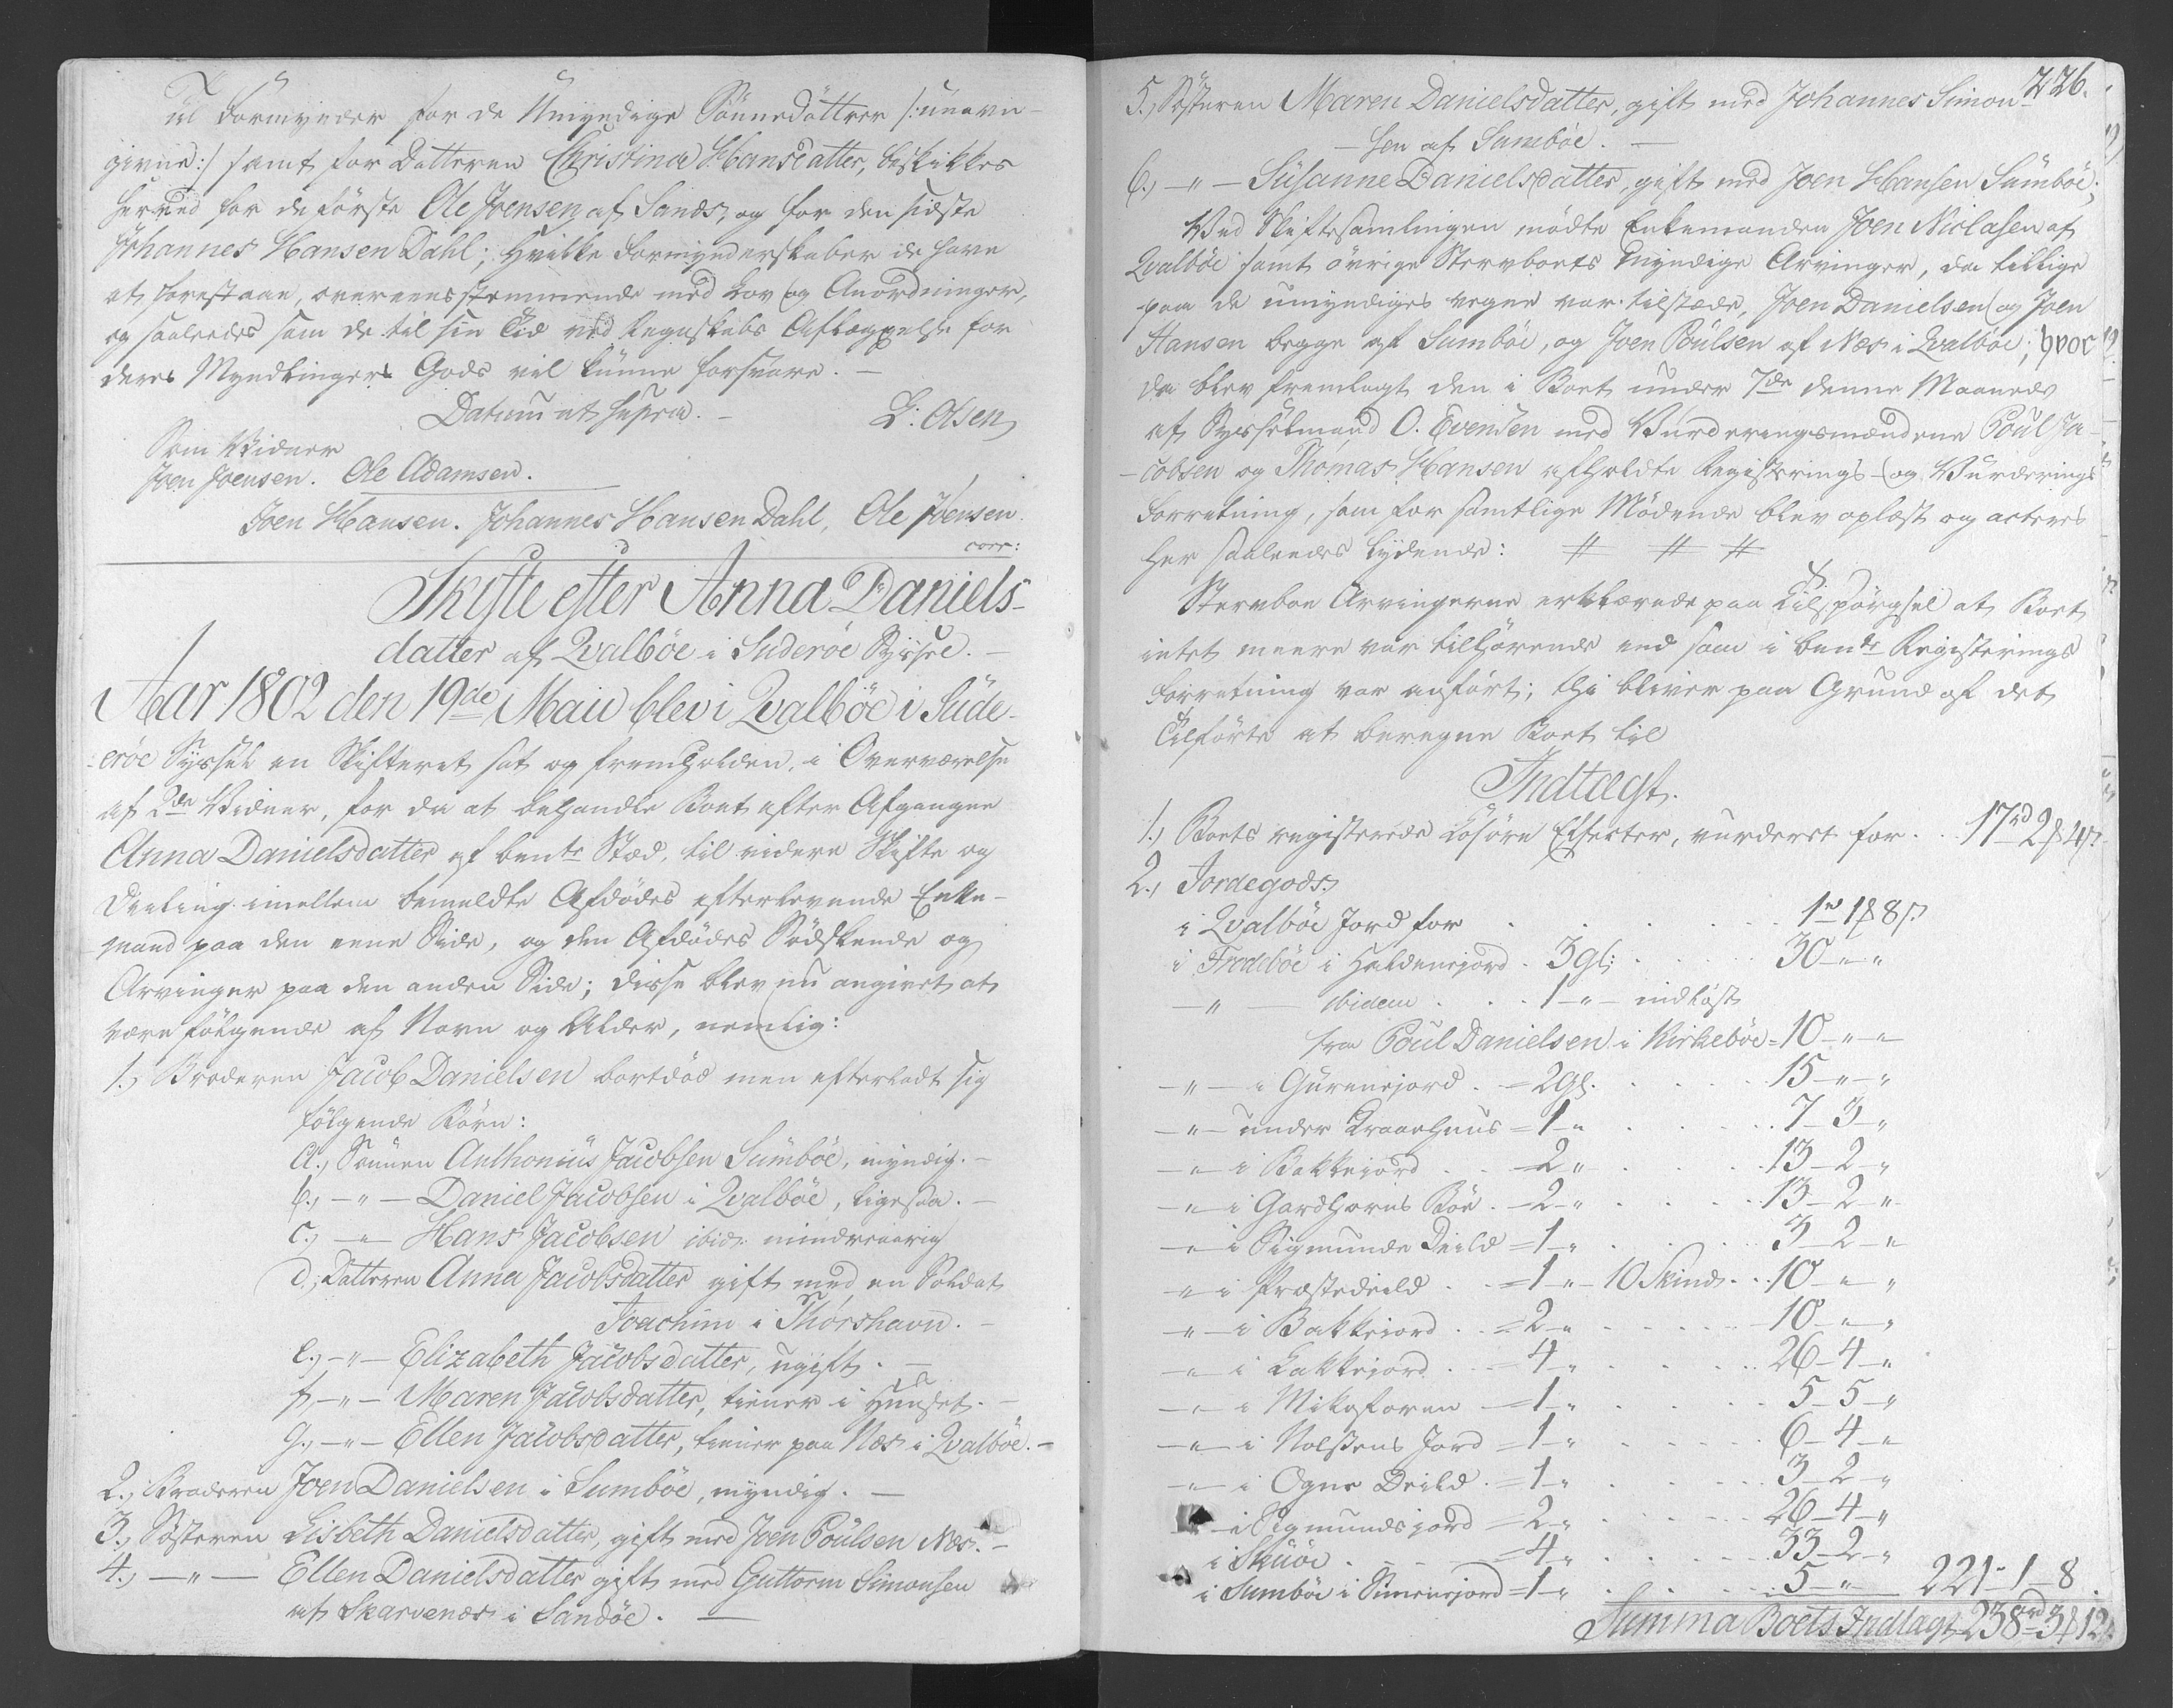 Til Formynder for de Umyndige Sønnedøttrer /: unavn-
givne :/ samt for Datteren Christina Hansdatter, beskikkes
herved for de første Ole Joensen af Sands, og for den sidste
Johannes Hansen Dahl; hvilke Formynderskaber de have
at forestaae, overeensstemmende med Lov og Anordninger,
og saaledes som de til sin Tid ved Regnskabs Aflæggelse for
deres Myndlingers Gods vil kunne forsvare. —
Datum ut supra. —
L: Olsen
Som Vidner
Joen Joensen. Ole Adamsen.
Joen Hansen. Johannes Hansen Dahl, Ole Joensen
corr:
Skifte efter Anna Daniels-
datter af Qvalböe i Suderöe Syssel. —
Aar 1802 den 19de Maii blev i Qvalböe i Süde-
eröe Syssel en Skifteret sat og fremholden, i Overværelse
af 2de Vidner, for da at behandle Boet efter Afgangne
Anna Danielsdatter af bemte Stæd, til videre Skifte og
Deeling imellem bemeldte Afdödes efterlevende Enke-
mand paa den eene Side, og den Afdödes Södskende og
Arvinger paa den anden Side; disse blev nu angivet at
være følgende af Navn og Alder, nemlig:
1., Broderen Jacob Danielsen bortdöd men efterladt sig
følgende Börn:
a., Sönnen Anthonius Jacobsen Sümböe, myndig. —
b., —"— Daniel Jacobsen i Qvalböe, ligesaa. —
c., —"— Hans Jacobsen ibid: mindreaarig
d., Datteren Anna Jacobsdatter gift med en Soldat
Joachim i Thorshavn. —
e., —"— Elizabeth Jacobsdatter, ugift. —
f., —"— Maren Jacobsdatter, tiener i Huuset. —
g., —"— Ellen Jacobsdatter, tiener paa Næs i Qvalböe. —
2., Broderen Joen Danielsen i Sumböe, myndig. —
3., Søsteren Lisbeth Danielsdatter, gift med Joen Poülsen Næs. —
4., —"— Ellen Danielsdatter gift med Guttorm Simonsen
af Skarvenæs i Sandöe. —
226.
5., Søsteren Maren Danielsdatter, gift med Johannes Simon-
-sen af Sumböe. —
6., —"— Susanne Danielsdatter, gift med Joen Hansen Sümböe;
Ved Skiftesamlingen mödte Enkemanden Joen Niclasen af
Qvalböe samt övrige Stervboets Myndige Arvinger, da tillige
paa de umyndiges vegne var tilstæde, Joen Danielsen og Joen
Hansen begge af Sumböe, og Joen Poülsen af Næs i Qvalböe; hvor
da blev fremlagt den i Boet under 7de denne Maaneds
af Sysselmand O. Evensen med Vurderingsmændene Poul Ja-
-cobsen og Thomas Hansen afholdte Registrings- og Vurderings
Forretning, som for samtlige Mödende blev oplæst og acteres
her saaledes lydende: # # #
Stervboe Arvingerne erklærede paa Tilspörgsel at Boet
intet meere var tilhörende end som i bemte Registerings
Forretning var anfört; thi bliver paa Grund af det
Tilförte at beregne Boet til
Indtægt.
1., Boets registerede Lösöre Effecter, vurderet for . . 17rd 2ß 4ß.
2., Jordegods:
i Qvalböe Jord for . . . . 1rd 1ß 8ß.
i Frodeböe i Haldenejord . 3 gl: . . 30 — " "
—"— ibidem . . . 1 —"— indlöst
fra Poul Danielsen i Kirkeböe = 10 — " —
—"— i Gürenejord . = 2 gl. . . . 15 — " — "
—"— under Kraaehuus = 1 " . . . 7 — 3 — "
—"— i Bakkejord . . = 2 " . . . 13 — 2 — "
—"— i Gardhorns Böe . = 2 — " . . . 13 — 2 — "
—"— i Sigmunds Deild = 1 — " . . . 3 — 2 — "
—"— i Præstedeild . . = 1 " — 10 Skind . . 10 — " — "
—"— i Bakkejord . . = 2 — " . . . 10 — " — "
—"— i Lakkejord . . = 4 — " . . . 26 — 4 — "
—"— i — = 1 — " . . . 5 — 5 — "
—"— i Jord = 1 — " . . . 6 — 4 — "
—"— i Ogne Deild . = 1 — " . . . 3 — 2 — "
— i Sigmundsjord = 2 — " . . . 26 — 4 — "
i Skuöe . . . = 4 — " . . . 33 — 2 — "
i Sumböe i Simenejord = 1 — " . . . 5 — " — 221 — 1 — 8.
Summa Boets Indtægt 238rd 3ß 12